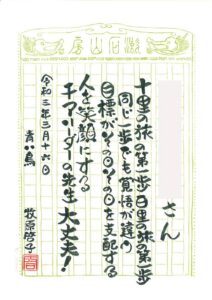 漱石山房
さん
十里の旅の第一歩百里の旅の第一歩
同じ一歩でも覚悟が違う
目標がその日その日を支配する
人を笑顔にする
チアリーダーの先生大丈夫!
令和三年三月十六日
青い鳥
牧原啓子